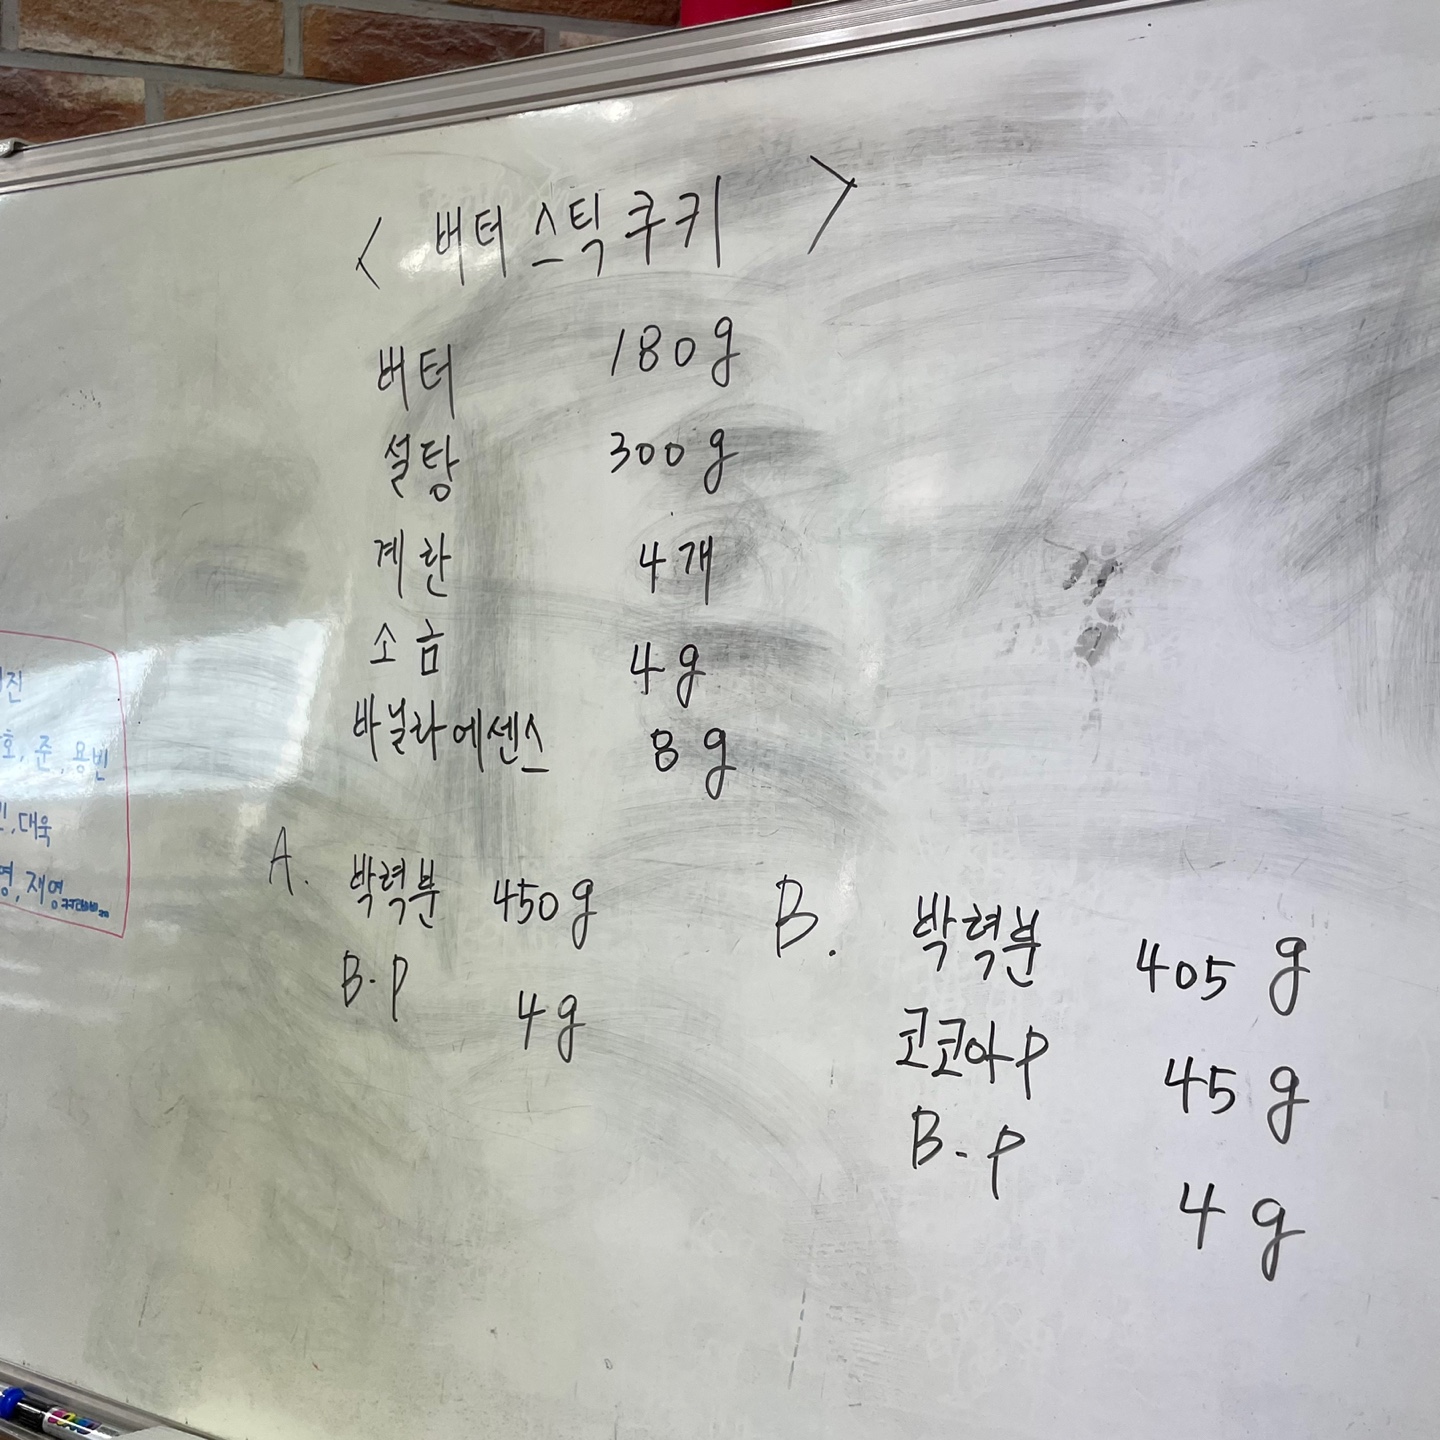 < 버터스틱쿠키 >
버터 180g
설탕 300g
계란 4개
소금 4g
바닐라에센스 8g
A. 박력분 450g
B.P 4g
B. 박력분 405g
코코아P 45g
B.P 4g
준, 용빈
대욱
재영